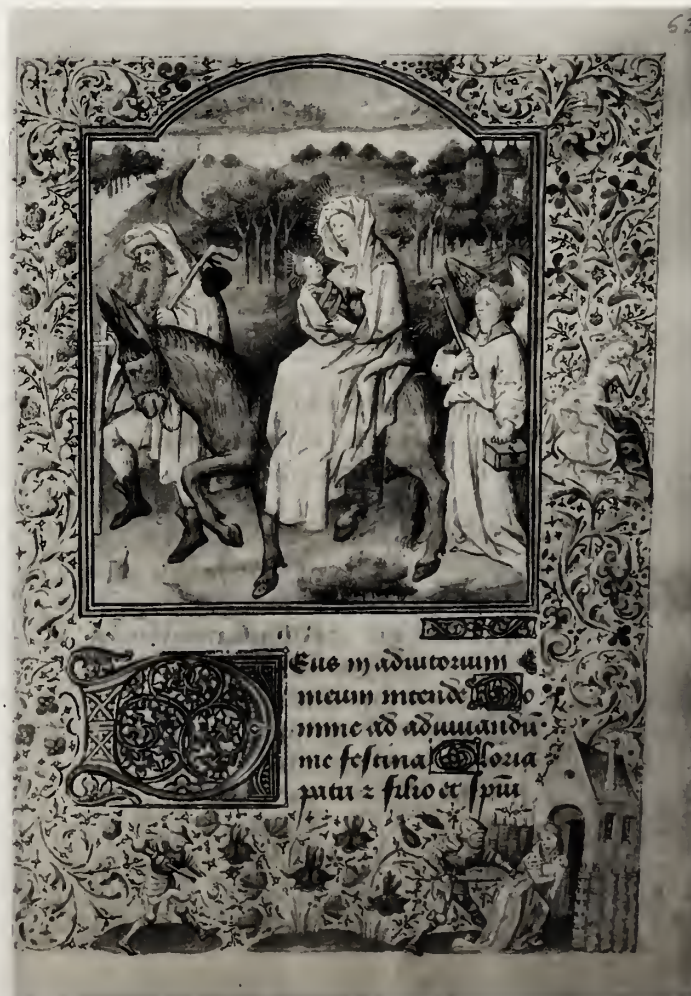 Deus in adiutorium
meum intende Do
mine ad adiuuandū
me festina Gloria
patri ⁊ filio et spūi